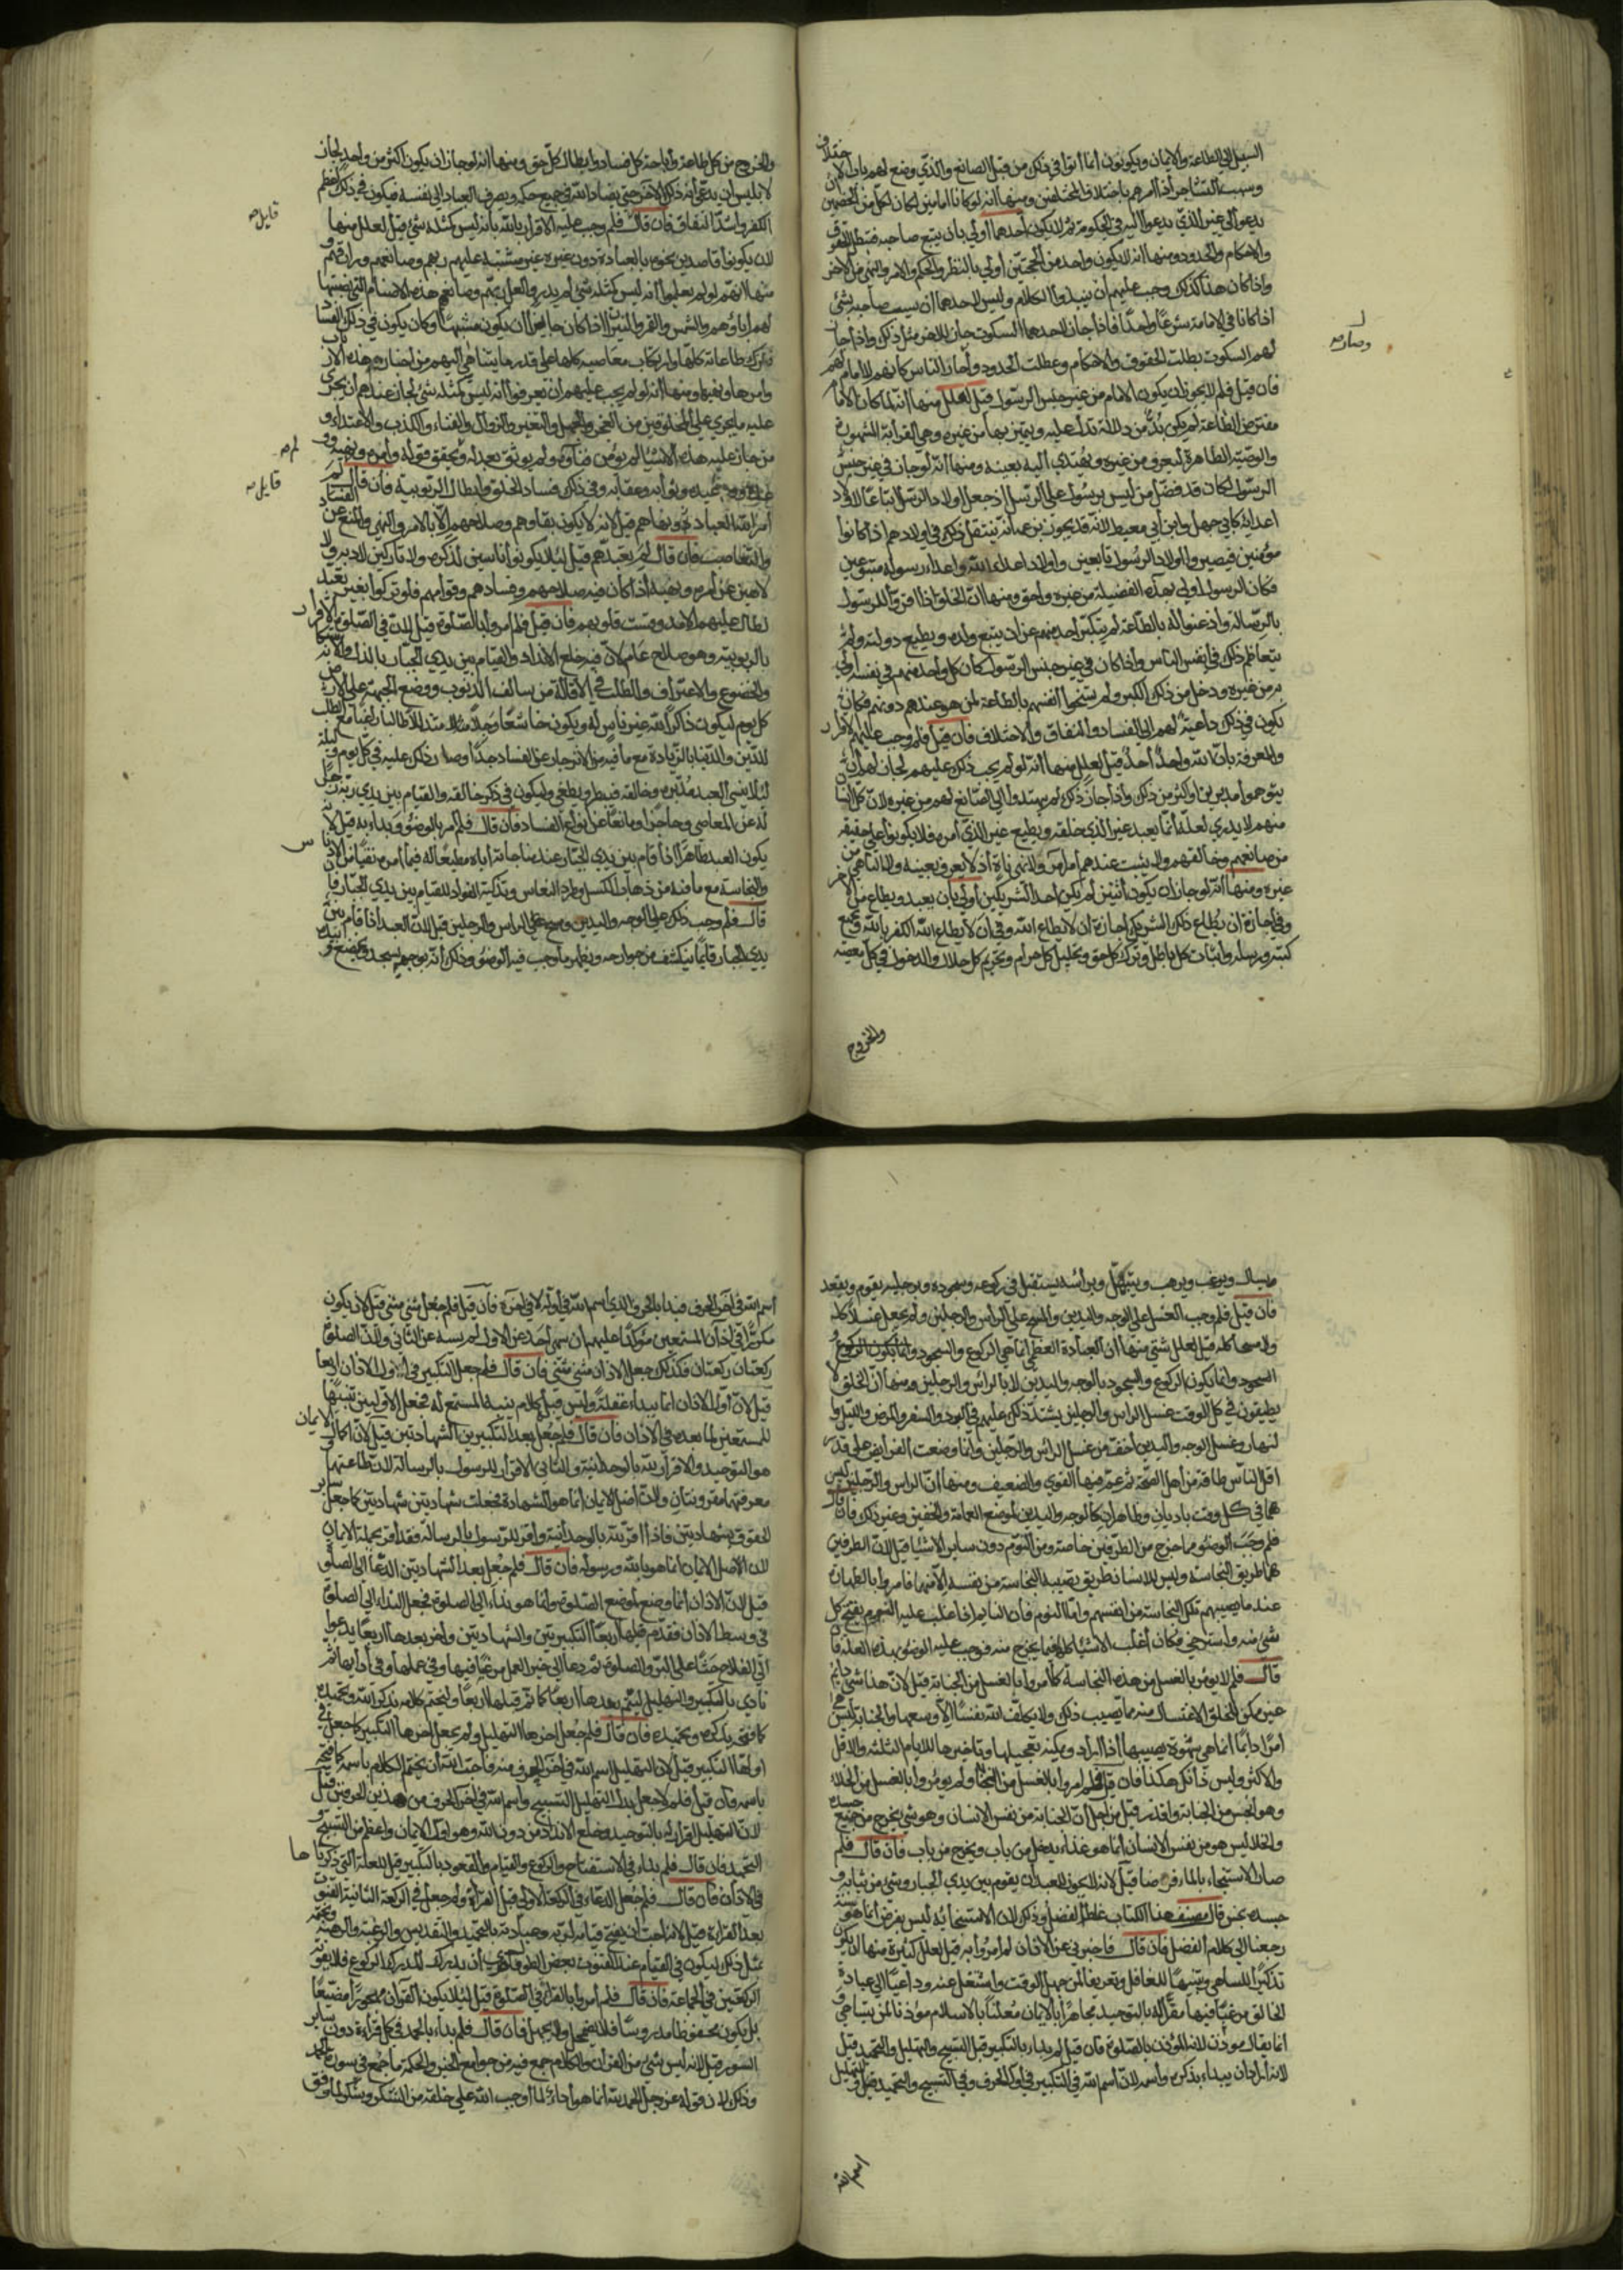 السبيل الى الطاعة والايمان ويكونون انما اتوا في ذلك من قبل الصانع والذي وضع لهم باب الاختلاف
وسبب التشاجر اذ امرهم باختلاف المختلفين ومنها انه لو كانا امامين لكان لكل من الخصمين ان
يدعو الى غير الذي يدعو اليه في الحكومة ثم لا يكون احدهما اولى بان يتبع صاحبه فتبطل الحقوق
والاحكام والحدود ومنها انه لا يكون واحد من الحجتين اولى بالنظر والحكم والامر والنهي من الاخر
واذا كان هذا كذلك وجب عليهم ان يبتدوا الكلام وليس لاحدهما ان يسبق صاحبه بشئ
اذا كانا في الامامة شرعا واحدا فاذا جاز لاحدهما السكوت جاز للاخر مثل ذلك واذا جاز
لهم السكوت بطلت الحقوق والاحكام وعطلت الحدود وصار الناس كانهم لا امام لهم
فان قيل فلم لا يجوز ان يكون الامام من غير جنس الرسول قيل لعلل منها انه لما كان الامام
مفترض الطاعة لم يكن بد من دلالة تدل عليه ويتميز بها من غيره وهي القرابة المشهورة
والوصية الظاهرة ليعرف من غيره ويهتدي اليه بعينه ومنها انه لو جاز في غير جنس
الرسول لكان قد فضل من ليس برسول على الرسل اذ جعل اولاد الرسل اتباعا لاولاد
اعدائه كابي جهل وابن ابي معيط لانه قد يجوز بزعمه انه ينتقل ذلك في اولادهم اذا كانوا
مؤمنين فيصير اولاد الرسول تابعين واولاد اعداء الله واعداء رسوله متبوعين
فكان الرسول اولى بهذه الفضيلة من غيره واحق ومنها ان الخلق اذا اقروا للرسول
بالرسالة واذعنوا له بالطاعة لم يتكبر احد منهم عن ان يتبع ولده ويطيع ذريته ولم
يتعاظم ذلك في انفس الناس واذا كان في غير جنس الرسول كان كل واحد منهم في نفسه اولى
به من غيره ودخل من ذلك الكبر ولم تسنح انفسهم بالطاعة لمن هو عندهم دونهم فكان
يكون في ذلك داعية لهم الى الفساد والنفاق والاختلاف فان قيل فلم وجب عليهم الاقرار
والمعرفة بان الله واحد احد قيل لعلل منها انه لو لم يجب ذلك عليهم لجاز لهم ان
يتوهموا مدبرين او اكثر من ذلك واذا جاز ذلك لم يهتدوا الى الصانع لهم من غيره لان كل انسان
منهم لا يدري لعله انما يعبد غير الذي خلقه ويطيع غير الذي امره فلا يكونوا على حقيقة
من صانعهم وخالقهم ولا يثبت عندهم امر آمر ولا نهي ناه اذ لا يعرف بعينه ولا الناهي من
غيره ومنها انه لو جاز ان يكون اثنين لم يكن احد الشريكين اولى بان يعبد ويطاع من الاخر
وفي اجازة ان يطاع ذلك الشريك اجازة ان لا يطاع الله وفي ان لا يطاع الله الكفر بالله وجميع
كتبه ورسله واثبات كل باطل وترك كل حق وتحليل كل حرام وتحريم كل حلال والدخول في كل معصية
والخروج
وصار
والخروج من كل طاعة واباحة كل فساد وابطال كل حق ومنها انه لو جاز ان يكون اكثر من واحد لجاز
لابليس ان يدعي انه ذلك الاخر حتى يضاد الله في جميع حكمه ويصرف العباد الى نفسه فيكون في ذلك اعظم
الكفر واشد النفاق فان قال فلم وجب عليه الاقرار بالله بانه ليس كمثله شئ قيل لعلل منها
لان يكونوا قاصدين نحوه بالعبادة دون غيره غير مشتبه عليهم ربهم وصانعهم ورازقهم و
منها انهم لو لم يعلموا انه ليس كمثله شئ لم يدروا لعل ربهم وصانعهم هذه الاصنام التي نصبتها
لهم اباؤهم والشمس والقمر والنيران اذا كان جايزا ان يكون مشبها وكان يكون في ذلك الفساد
وترك طاعاته كلها وارتكاب معاصيه كلها على قدر ما يتناهى اليهم من اخبار هذه الارباب
وامرها ونهيها ومنها انه لو لم يجب عليهم ان يعرفوا انه ليس كمثله شئ لجاز عندهم ان يجري
عليه ما يجري على المخلوقين من العجز والجهل والتغير والزوال والفناء والكذب والاعتداء و
من جاز عليه هذه الاشيا لم يؤمن فناؤه ولم يوثق بعدله ولم يحقق قوله وامره ونهيه ووعده
ووعيده وثوابه وعقابه وفي ذلك فساد الخلق وابطال الربوبية فان قال لم
امر الله العباد ونهاهم قيل لانه لا يكون بقاؤهم وصلاحهم الا بالامر والنهي والمنع عن الفساد
والتغاصب فان قال لم تعبدهم قيل لئلا يكونوا ناسين لذكره ولا تاركين لادبه ولا
لاهين عن امره ونهيه اذا كان فيه صلاحهم وفسادهم وقوامهم فلو تركوا بغير تعبد
لطال عليهم الامد وقست قلوبهم فان قيل فلم امروا بالصلوة قيل لان في الصلوة الاقرار
بالربوبية وهو صلاح عام لان فيه خلع الانداد والقيام بين يدي الجبار بالذل والاستكانة
والخضوع والاعتراف والطلب في الاقالة من سالف الذنوب ووضع الجبهة على الارض
كل يوم ليكون ذاكرا لله غير ناس له ويكون خاشعا وجلا متذللا طالبا راغبا مع الطلب
للدين والدنيا بالزيادة مع ما فيه من الانزجار عن الفساد جدا وصار ذلك عليه في كل يوم وليلة
لئلا ينسى العبد مدبره وخالقه فيبطر ويطغى وليكون في ذكر خالقه والقيام بين يدي ربه زجرا
له عن المعاصي وحاجزا ومانعا عن انواع الفساد فان قال فلم امر بالوضوء وبداء به قيل لان
يكون العبد طاهرا اذا قام بين يدي الجبار عند مناجاته اياه مطيعا له فيما امره نقيا من الادناس
والنجاسة مع ما فيه من ذهاب الكسل وطرد النعاس وتذكية الفواد للقيام بين يدي الجبار فان
قال فلم وجب ذلك على الوجه واليدين ومسح على الراس والرجلين قيل لان العبد اذا قام بين
يدي الجبار قايما ينكشف من جوارحه ويظهر ما وجب فيه الوضوء وذلك انه بوجهه يسجد ويخضع وبيده
قايل
لم
قايل
يسال ويرغب ويرهب ويتبتل وبراسه يستقبل في ركوعه وسجوده وبرجليه يقوم ويقعد
فان قيل فلم وجب الغسل على الوجه واليدين والمسح على الراس والرجلين ولم يجعل غسلا كله
ولا مسحا كله قيل لعلل شتى منها ان العبادة العظمى انما هي الركوع والسجود وانما يكون الركوع و
السجود وانما يكون الركوع والسجود بالوجه واليدين لا بالراس والرجلين ومنها ان الخلق لا
يطيقون في كل الوقت غسل الراس والرجلين يشتد ذلك عليهم في البرد والسفر والمرض والليل وا
لنهار وغسل الوجه واليدين اخف من غسل الراس والرجلين وانما وضعت الفرايض على قدر
اقل الناس طاقة من اهل الصحة ثم عم فيها القوي والضعيف ومنها ان الراس والرجلين ليس
هما في كل وقت باديان وظاهران كالوجه واليدين لموضع العمامة والخفين وغير ذلك فان قال
فلم وجب الوضوء مما خرج من الطرفين خاصة ومن النوم دون ساير الاشيا قيل لان الطرفين
هما طريق النجاسة وليس للانسان طريق تصيبه النجاسة من نفسه الا منهما فامروا بالطهارة
عند ما يصيبهم تلك النجاسة من انفسهم واما النوم فان النايم اذا غلب عليه النوم يفتح كل
شئ منه واسترخي فكان اغلب الاشيا كله فيما يخرج منه فوجب عليه الوضوء بهذه العلة فان
قال فلم لا يؤمر بالغسل من هذه النجاسة كما امروا بالغسل من الجنابة قيل لان هذا شئ دايم
غير ممكن للخلق الاغتسال منه مما يصيب ذلك ولا يكلف الله نفسا الا وسعها والجنابة ليس هي
امرا دايما انما هي شهوة يصيبها اذا اراد ويمكنه تعجيلها وتاخيرها للايام الثلثة والاقل
والاكثر وليس ذانك هكذا فان قيل فلم امروا بالغسل من الجنابة ولم يؤمروا بالغسل من الخلاء
وهو انجس من الجنابة واقذر قيل من اجل ان الجنابة من نفس الانسان وهو شئ يخرج من جميع جسده
والخلا ليس هو من نفس الانسان انما هو غذاء يدخل من باب ويخرج من باب فان قال فلم
صار الاستنجاء بالماء فرضا قيل لانه لا يجوز للعبد ان يقوم بين يدي الجبار وشئ من ثيابه و
جسده نجس قال مصنف هذا الكتاب غلط الفضل وذلك لان الاستنجا به ليس بفرض انما هو سنة
رجعنا الى كلام الفضل فان قال فاخبرني عن الاذان لم امروا به قيل لعلل كثيرة منها ان يكون
تذكيرا للساهي وتنبيها للغافل وتعريفا لمن جهل الوقت واشتغل عنه وداعيا الى عبادة
الخالق مرغبا فيها مقرا له بالتوحيد مجاهرا بالايمان معلنا بالاسلام مؤذنا لمن يتساهى و
انما يقال مؤذن لانه المؤذن بالصلوة فان قيل لم بداء بالتكبير قبل التسبيح والتهليل والتحميد قيل
لانه اراد ان يبداء بذكره واسمه لان اسم الله في التكبير في اول الحرف وفي التسبيح والتحميد والتهليل
اسم الله
اسم الله في اخر الحرف فبدا بالحرف الذي اسم الله في اوله لا في اخره فان قيل فلم جعل مثنى مثنى قيل لان يكون
مكررا في اذان المستمعين مؤكدا عليهم ان سهى احد عن الاول لم يسه عن الثاني ولان الصلوة
ركعتان ركعتان فكذلك جعل الاذان مثنى مثنى فان قال فلم جعل التكبير في اول الاذان اربعا
قيل لان اول الاذان انما يبداء غفلة وليس قبله كلام ينبه المستمع له فجعل الاوليين تنبيها
للمستمعين لما بعده في الاذان فان قال فلم جعل بعد التكبيرين الشهادتين قيل لان اكمال الايمان
هو التوحيد والاقرار لله بالوحدانية والثاني الاقرار للرسول بالرسالة لان طاعتهما
معرفتهما مقرونتان ولان اصل الايمان انما هو الشهادة فجعلت شهادتين شهادتين كما جعل ساير
الحقوق بشهادتين فاذا اقر لله بالوحدانية واقر للرسول بالرسالة فقد اقر بجملة الايمان
لان الاصل الايمان انما هو بالله ورسوله فان قال فلم جعل بعد الشهادتين الدعا الى الصلوة
قيل لان الاذان انما وضع لموضع الصلوة وانما هو نداء الى الصلوة فجعل النداء الى الصلوة
في وسط الاذان فقدم قبلها اربعا التكبيرتين والشهادتين واخر بعدها اربعا يدعوا
الى الفلاح حثا على البر والصلوة ثم دعا الى خير العمل مرغبا فيها وفي عملها وفي ادائها ثم
نادى بالتكبير والتهليل ليتم بعدها اربعا كما تم قبلها اربعا وليختم كلامه بذكر الله وتحميده
كما فتحه بذكره وتحميده فان قال فلم جعل اخرها التهليل ولم يجعل اخرها التكبير كما جعل في
اولها التكبير قيل لان التهليل اسم الله في اخر الحرف منه فاحب الله ان يختم الكلام باسمه كما فتحه
باسمه فان قيل فلم لا جعل بدل التهليل التسبيح واسم الله في اخر الحرف من هذين الحرفين قيل
لان التهليل اقرار له بالتوحيد وخلع الانداد من دون الله وهو اول الايمان واعظم من التسبيح و
التحميد فان قال فلم بداء في الاستفتاح والركوع والقيام والقعود بالتكبير قيل للعلة التي ذكرناها
في الاذان فان قال فلم جعل الدعاء في الركعة الاولى قبل القراءة ولم جعل في الركعة الثانية القنوت
بعد القراءة قيل لانه احب ان يفتح قيامه لربه وعبادته بالتحميد والتقديس والرغبة والرهبة ويختمه
بمثل ذلك ليكون في القيام عند القنوت بعض الطول فاحرى ان يدرك المدرك الركوع فلا تفوته
الركعتين في الجماعة فان قال فلم امروا بالقراة في الصلوة قيل لئلا يكون القران مهجورا مضيعا
بل يكون محفوظا مدروسا فلا يضمحل ولا يجهل فان قال فلم بداء بالحمد في كل قراءة دون ساير
السور قيل لانه ليس شئ من القران والكلام جمع فيه من جوامع الخير والحكمة ما جمع في سورة الحمد
وذلك لان قوله عز وجل الحمد لله انما هو اداء لما اوجب الله على خلقه من الشكر وشكر لما وفق